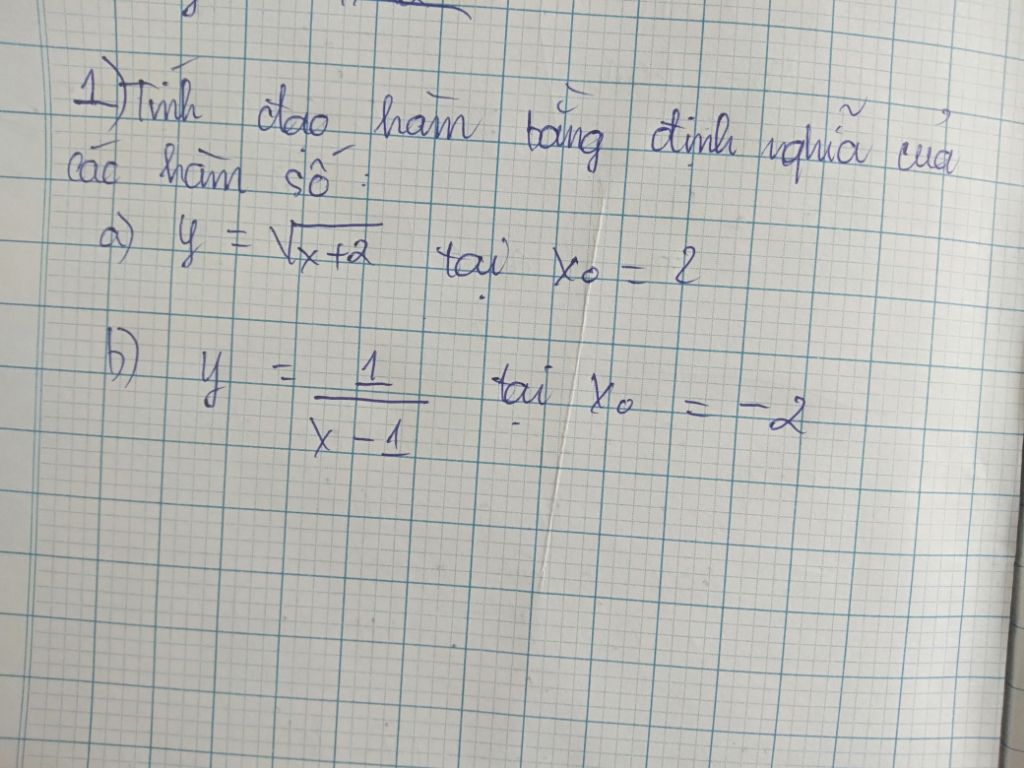 1) Tính đạo hàm bằng định nghĩa của
các hàm số:
a) y = √(x+2) tại x₀ = 2
b) y = 1/(x-1) tại x₀ = -2